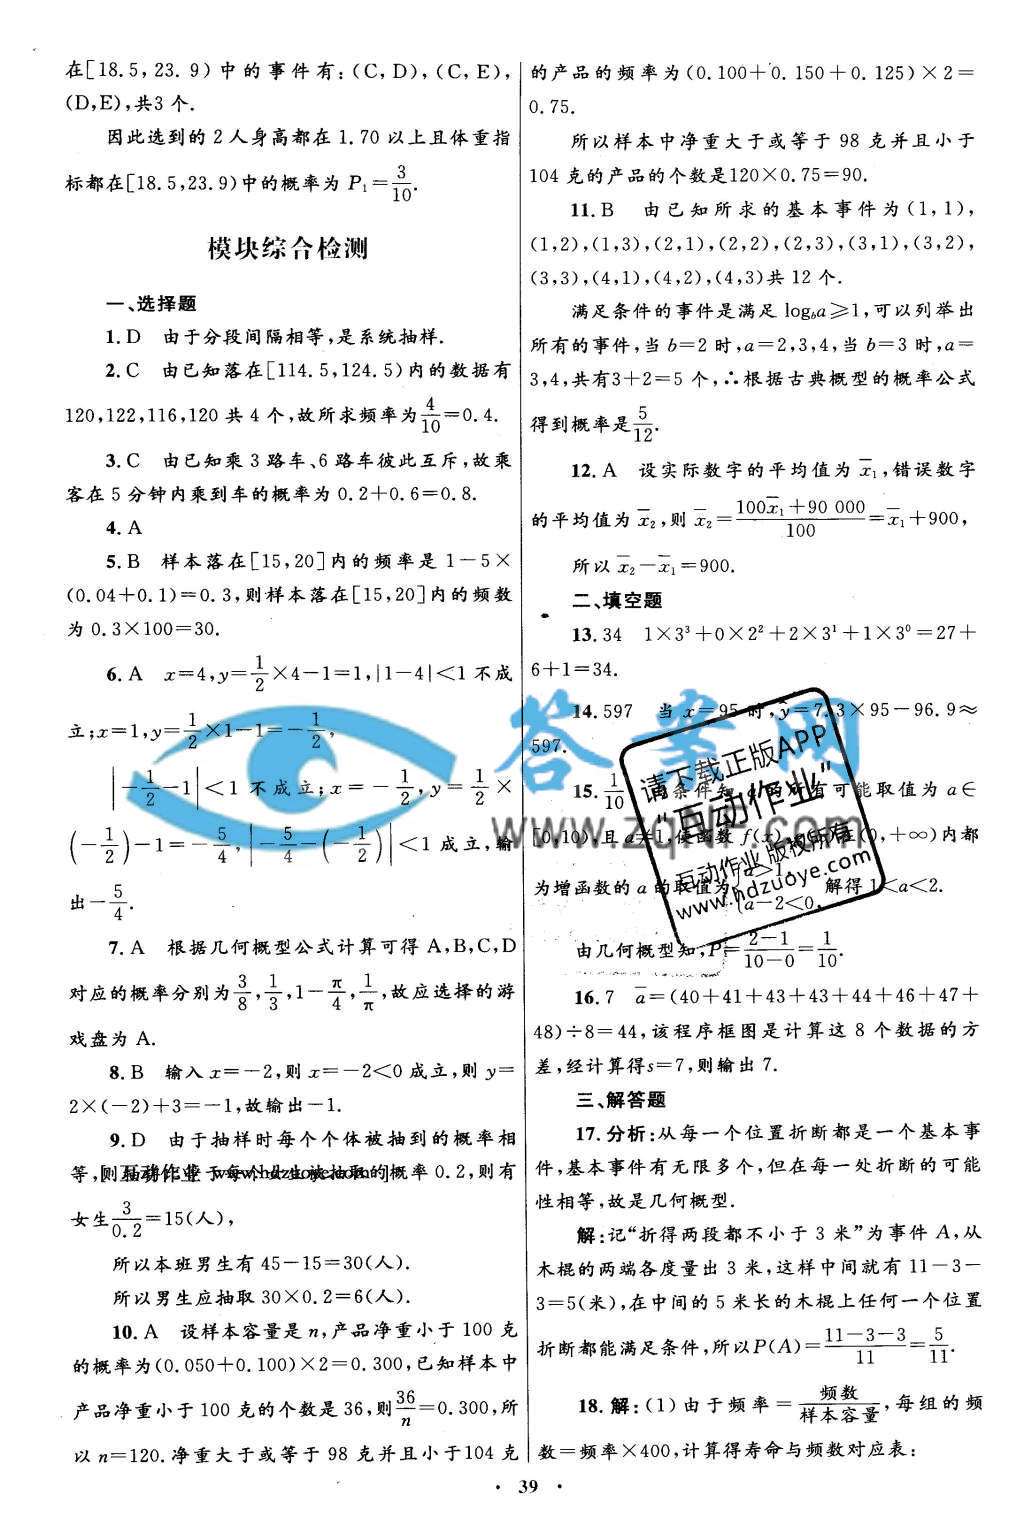 在[18.5,23.9)中的事件有:(C,D),(C,E),
(D,E),共3个.
因此选到的2人身高都在1.70以上且体重指
标都在[18.5,23.9)中的概率为 P₁=3/10.
模块综合检测
一、选择题
1.D 由于分段间隔相等,是系统抽样.
2.C 由已知落在[114.5,124.5)内的数据有
120,122,116,120共4个,故所求频率为4/10=0.4.
3.C 由已知乘3路车、6路车彼此互斥,故乘
客在5分钟内乘到车的概率为0.2+0.6=0.8.
4.A
5.B 样本落在[15,20]内的频率是1-5×
(0.04+0.1)=0.3,则样本落在[15,20]内的频数
为0.3×100=30.
6.A x=4,y=1/2×4-1=1,|1-4|<1不成
立;x=1,y=1/2×1-1=-1/2,
|-1/2-1|<1不成立;x=-1/2,y=1/2×
(-1/2)-1=-5/4,|-5/4-(-1/2)|<1成立,输
出-5/4.
7.A 根据几何概型公式计算可得A,B,C,D
对应的概率分别为3/8,1/3,1-π/4,1/π,故应选择的游
戏盘为A.
8.B 输入x=-2,则x=-2<0成立,则y=
2×(-2)+3=-1,故输出-1.
9.D 由于抽样时每个个体被抽到的概率相
等,则 的概率0.2,则有
女生3/0.2=15(人),
所以本班男生有45-15=30(人).
所以男生应抽取30×0.2=6(人).
10.A 设样本容量是n,产品净重小于100克
的概率为(0.050+0.100)×2=0.300,已知样本中
产品净重小于100克的个数是36,则36/n=0.300,所
以n=120.净重大于或等于98克并且小于104克
的产品的频率为(0.100+0.150+0.125)×2=
0.75.
所以样本中净重大于或等于98克并且小于
104克的产品的个数是120×0.75=90.
11.B 由已知所求的基本事件为(1,1),
(1,2),(1,3),(2,1),(2,2),(2,3),(3,1),(3,2),
(3,3),(4,1),(4,2),(4,3)共12个.
满足条件的事件是满足log_b a≥1,可以列举出
所有的事件,当b=2时,a=2,3,4,当b=3时,a=
3,4,共有3+2=5个,∴根据古典概型的概率公式
得到概率是5/12.
12.A 设实际数字的平均值为x̄₁,错误数字
的平均值为x̄₂,则x̄₂=(100x̄₁+90 000)/100=x̄₁+900,
所以x̄₂-x̄₁=900.
二、填空题
13.34 1×3³+0×2²+2×3¹+1×3⁰=27+
6+1=34.
14.597 当x=95时,ȳ=7.3×95-96.9≈
597.
15.1/10 条件知 的所有可能取值为a∈
[0,10),且a≠1,使函数f(x) 在(0,+∞)内都
为增函数的a的取值为{a>1, a-2<0, 解得1<a<2.
由几何概型知,P=(2-1)/(10-0)=1/10.
16.7 ā=(40+41+43+43+44+46+47+
48)÷8=44,该程序框图是计算这8个数据的方
差,经计算得s=7,则输出7.
三、解答题
17.分析:从每一个位置折断都是一个基本事
件,基本事件有无限多个,但在每一处折断的可能
性相等,故是几何概型.
解:记“折得两段都不小于3米”为事件A,从
木棍的两端各度量出3米,这样中间就有11-3-
3=5(米),在中间的5米长的木棍上任何一个位置
折断都能满足条件,所以P(A)=(11-3-3)/11=5/11.
18.解:(1)由于频率=频数/样本容量,每组的频
数=频率×400,计算得寿命与频数对应表:
· 39 ·
答案网
www.zqnf.com
请下载正版APP
“互动作业”
互动作业 版权所有
www.hdzuoye.com